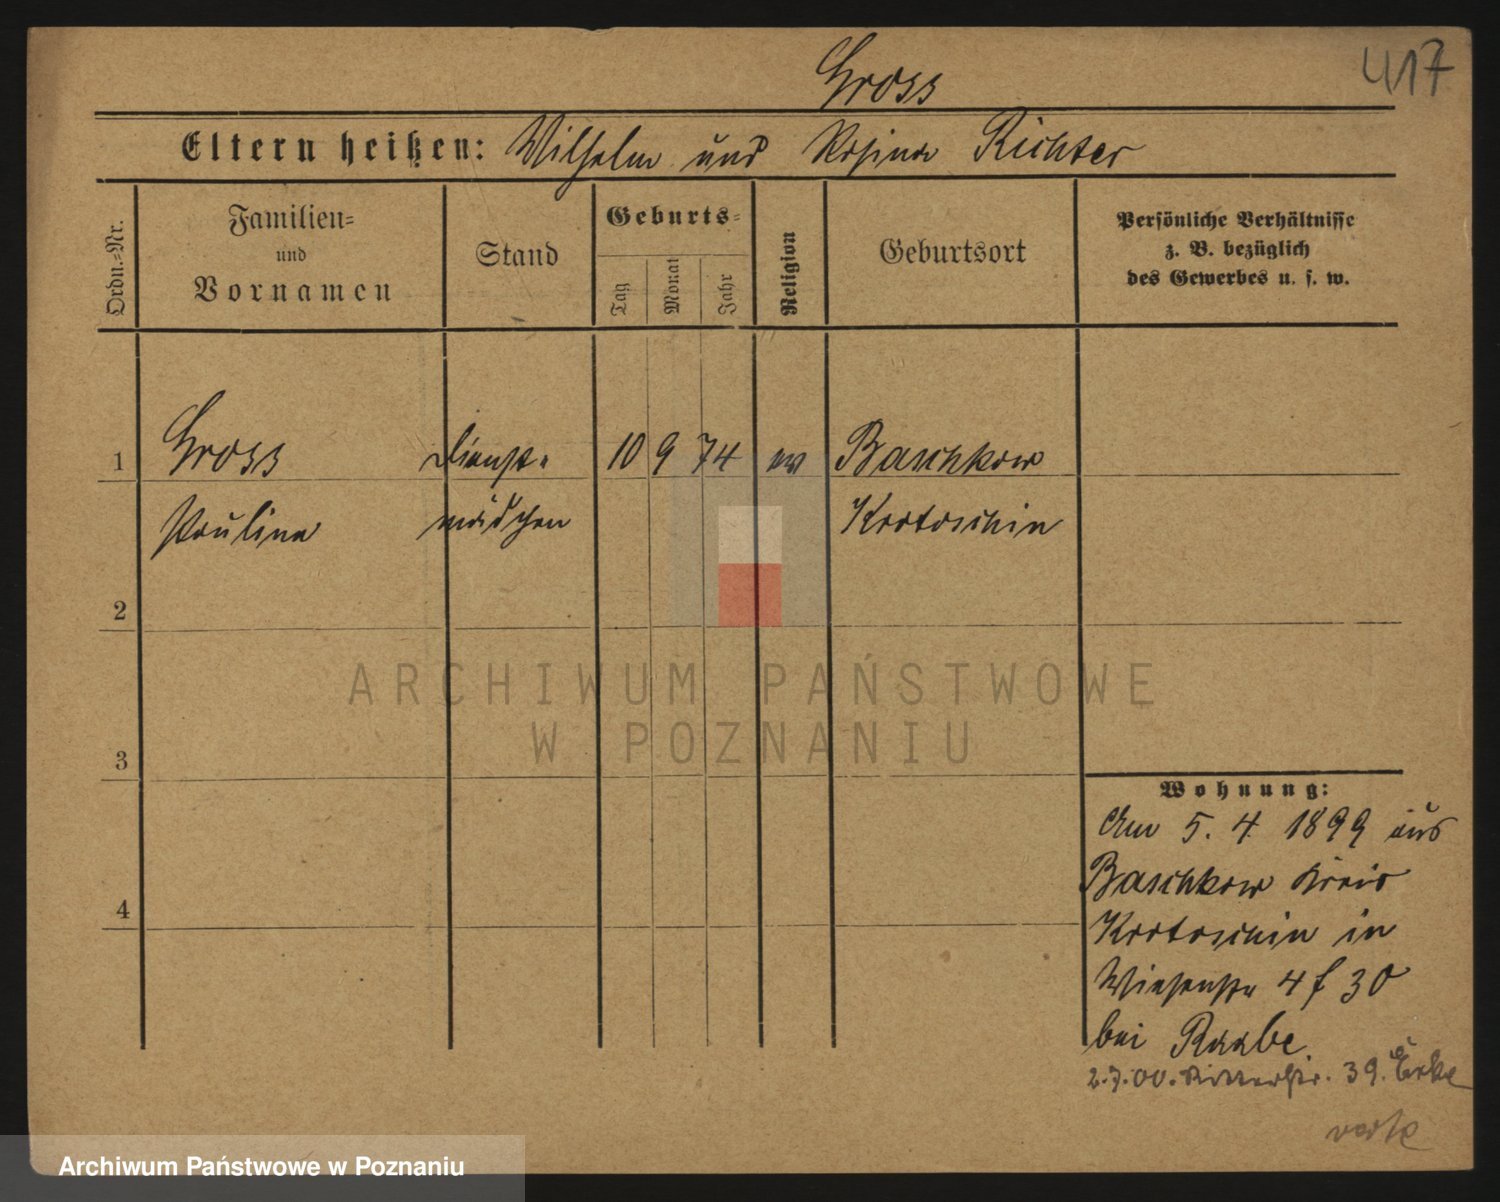 Gross
417
Eltern heißen: Wilhelm und Rosina Richter
Ordn.-Nr.
Familien-
und
Vornamen
Stand
Geburts-
Tag
Monat
Jahr
Religion
Geburtsort
Persönliche Verhältnisse
z. B. bezüglich
des Gewerbes u. s. w.
1 Gross Dienst- 10 9 74 ev Baschkow
Paulina mädchen Krotoschin
2
3
4
ARCHIWUM PAŃSTWOWE
W POZNANIU
Wohnung:
Am 5. 4. 1899 aus
Baschkow Kreis
Krotoschin in
Wiesenstr 4 f 30
bei Raabe.
2.7.00. Ritterstr. 39.
verte
Archiwum Państwowe w Poznaniu